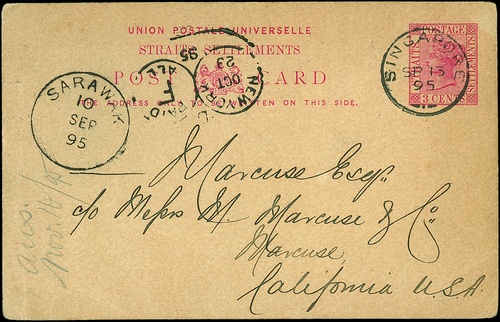 UNION POSTALE UNIVERSELLE
STRAITS SETTLEMENTS
POST CARD
THE ADDRESS ONLY TO BE WRITTEN ON THIS SIDE.
POSTAGE
3 CENTS
SINGAPORE
SE 13
95
SARAWAK
10
SEP
95
NEW YORK
OCT
23
95
PAID
ALL
Marcuse Esqr.
c/o Messrs M. Marcuse & Co.
Marcuse
California U.S.A.
ans.